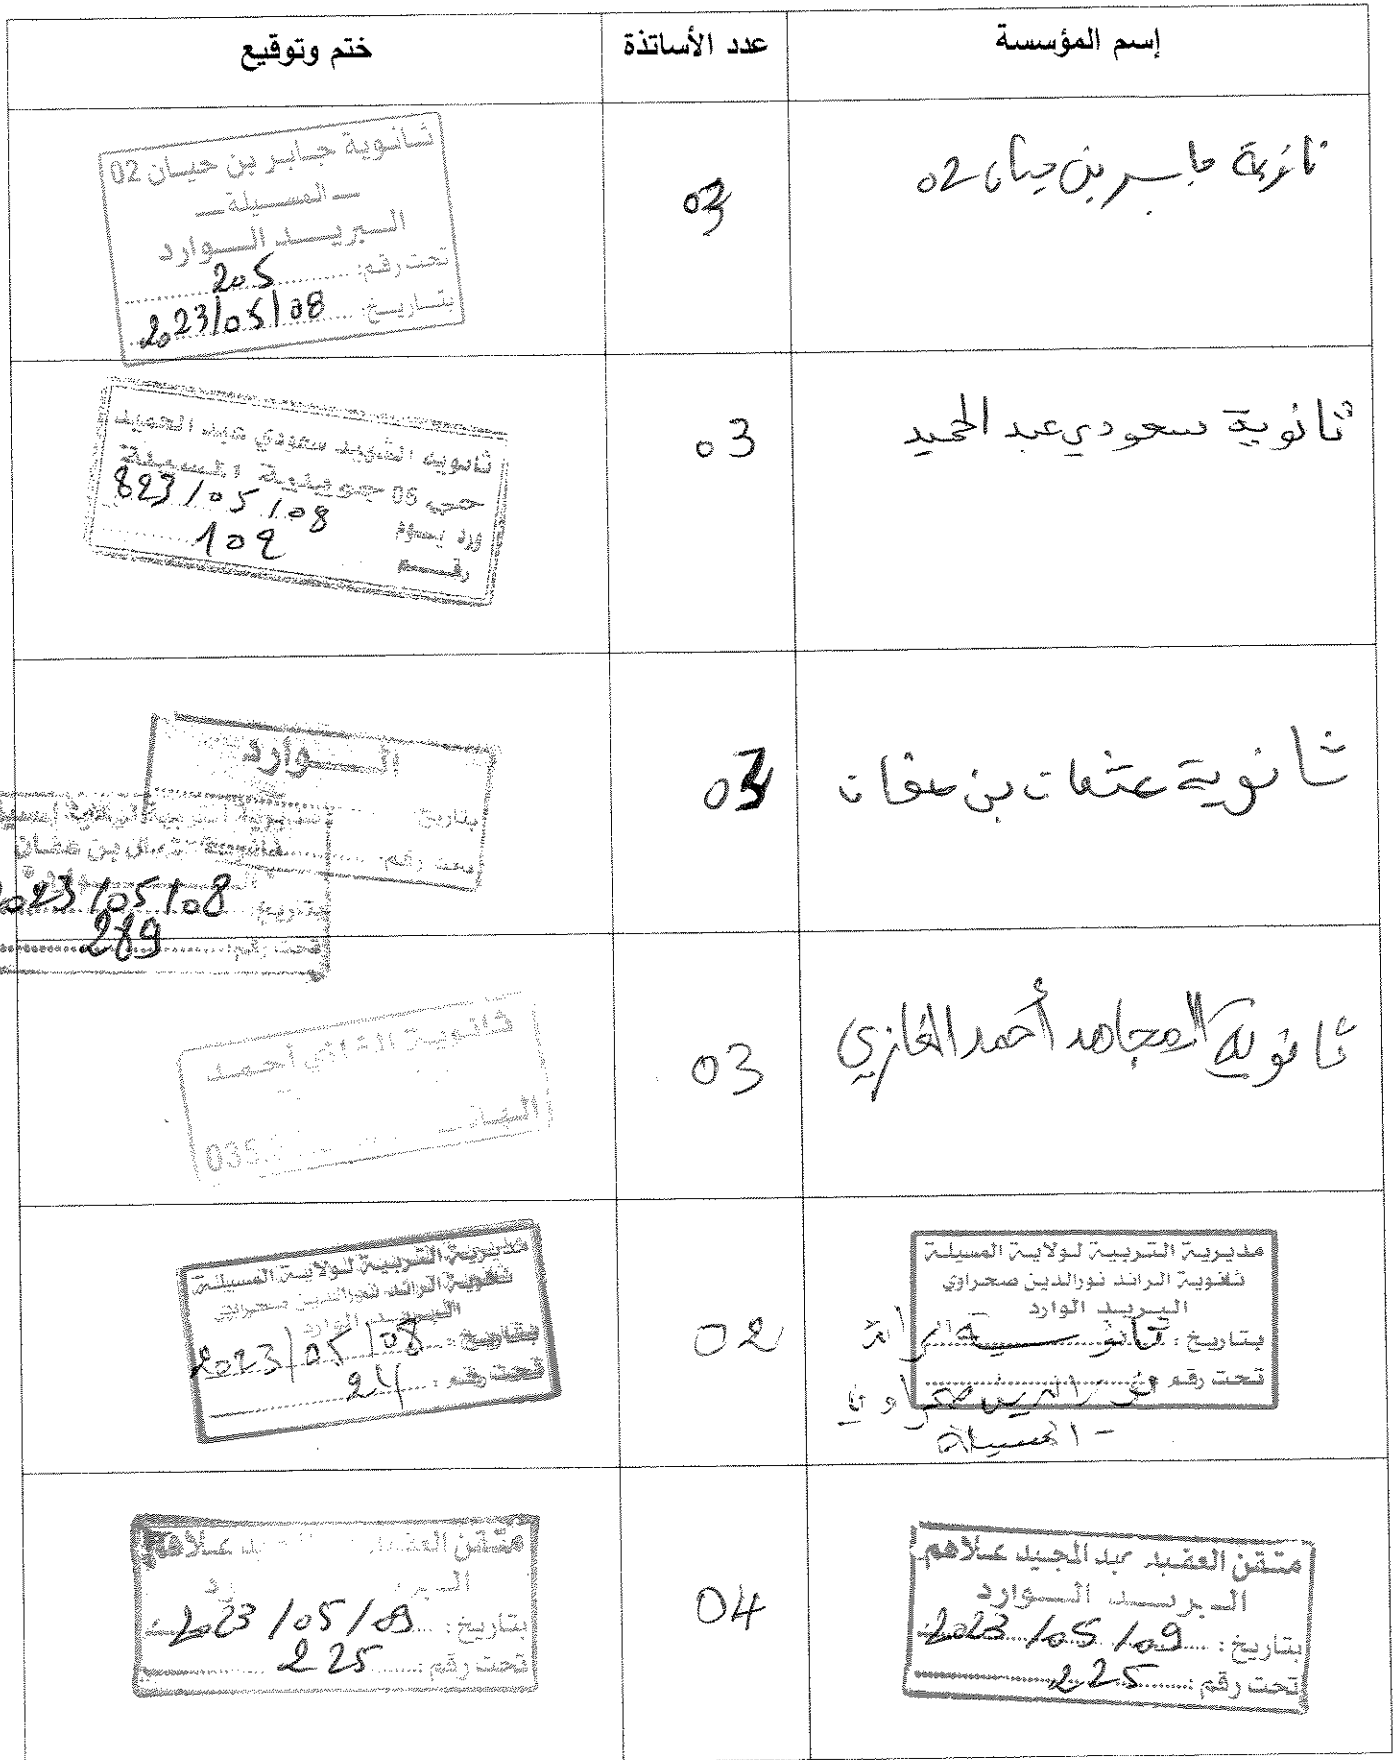 إسم المؤسسة
عدد الأساتذة
ختم وتوقيع
ثانوية جابر بن حيان 02
03
ثانوية جابر بن حيان 02
ـ المسيلة ـ
البريد الوارد
تحت رقم: 205
بتاريخ: 2023/05/08
ثانوية سعودي عبد الحميد
03
ثانوية الشهيد سعودي عبد الحميد
حي 05 جويلية المسيلة
ورد يوم 823/05/08
رقم 102
ثانوية عثمان بن عفان
03
الوارد
بتاريخ:
تحت رقم:
ثانوية عثمان بن عفان
بتاريخ: 2023/05/08
تحت رقم: 289
ثانوية المجاهد أحمد الغازي
03
ثانوية الغازي أحمد
035.
مديرية التربية لولاية المسيلة
ثانوية الرائد نورالدين صحراوي
البريد الوارد
بتاريخ:
تحت رقم:
ثانوية الرائد
نور الدين صحراوي
- المسيلة
02
مديرية التربية لولاية المسيلة
ثانوية الرائد نورالدين صحراوي
البريد الوارد
بتاريخ: 2023/05/08
تحت رقم: 24
متقن العقيد عبد المجيد علاهم
البريد الوارد
بتاريخ: 2023/05/09
تحت رقم: 225
04
متقن العقيد علاهم
بتاريخ: 2023/05/09
تحت رقم: 225